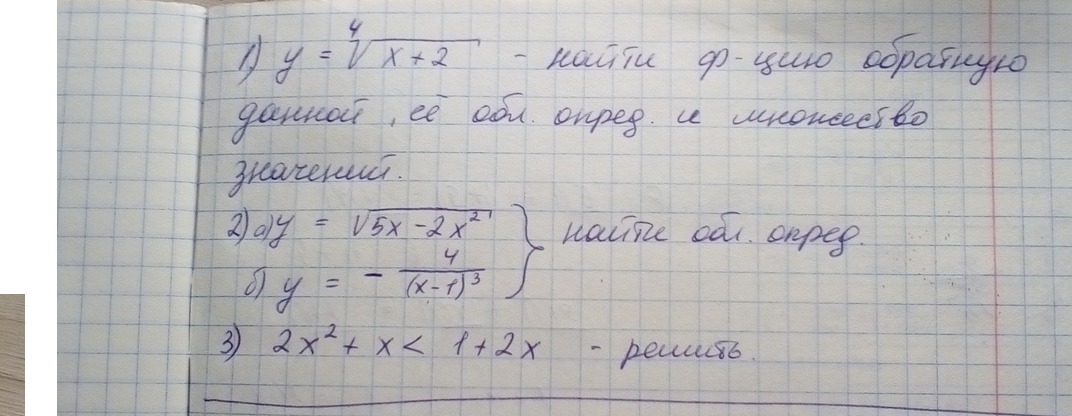 1) y = ∜(x+2) - найти ф-цию обратную
данной, её обл. опред. и множество
значений.
2) а) y = √(5x - 2x²) } найти обл. опред.
б) y = - 4/(x-1)³
3) 2x² + x < 1 + 2x - решить.